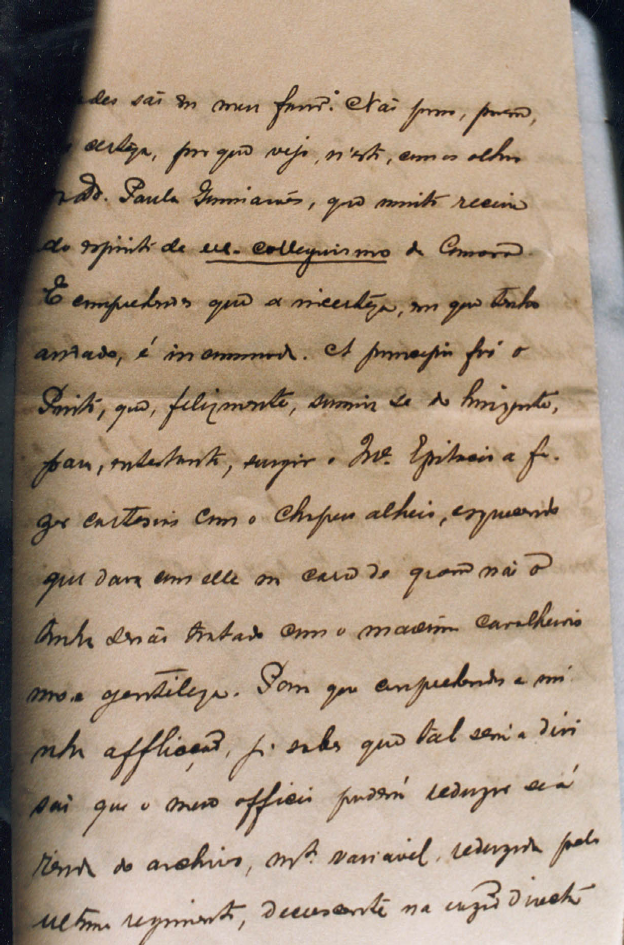 des são em meu favor. Não posso, porem,
certeza, por que vejo, n'esta, com os olhos
Paula Guimarães, que muito receia
do espirito de ex-colleguismo da Camara.
E comprehendes que a incerteza, em que tenho
andado, é incommoda. A principio foi o
que, felizmente, sumiu se do horizonte,
para, entretanto, surgir o Epitacio a fa-
zer cortesias com o chapeu alheio, esquecendo
que dava com elle na cara de quem não o
tinha senão tratado com o maximo cavalheiris
mo e gentileza. Para que comprehendas a mi
nha afflicção, saber que tal seria a divi
são que o meu officio poderá reduzir se á
renda do archivo, mto. variavel, reduzida pelo
ultimo regimento, decrescente na razão directa